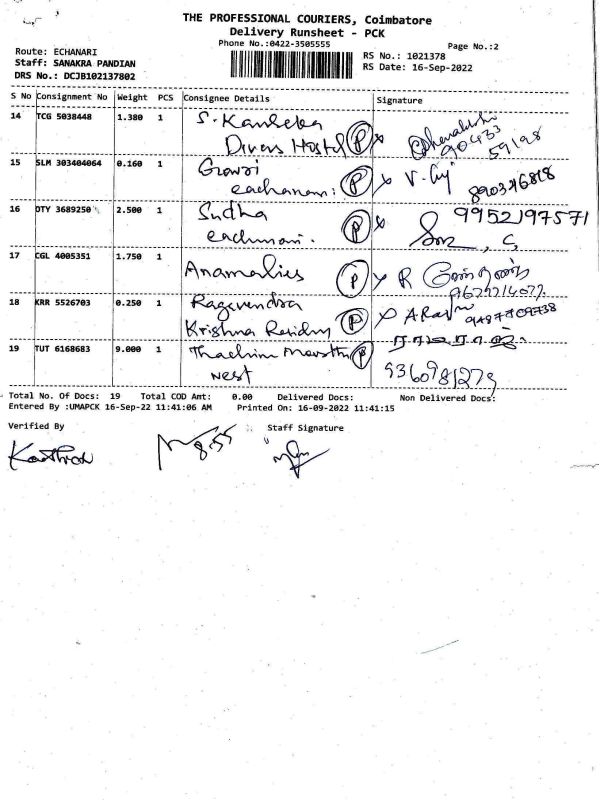 THE PROFESSIONAL COURIERS, Coimbatore
Delivery Runsheet - PCK
Phone No.:0422-3505555
Page No.:2
Route: ECHANARI
Staff: SANAKRA PANDIAN
DRS No.: DCJB102137802
RS No.: 1021378
RS Date: 16-Sep-2022
S No Consignment No Weight PCS Consignee Details Signature
14 TCG 5038448 1.380 1 S. Kanbeka
Divers Hostel P x
90433
59198
15 SLM 303404064 0.160 1 Gowri
eachanari. P x V.
890376818
16 OTY 3689250 2.500 1 Sudha
eachnari. P x 9952197571
17 CGL 4005351 1.750 1 Anamalies P x R
18 KRR 5526703 0.250 1 Ragavendra
Krishna Residny P x A.
19 TUT 6168683 9.000 1 P
west 9360981279
Total No. Of Docs: 19 Total COD Amt: 0.00 Delivered Docs: Non Delivered Docs:
Entered By :UMAPCK 16-Sep-22 11:41:06 AM Printed On: 16-09-2022 11:41:15
Verified By Staff Signature
Karthick 855